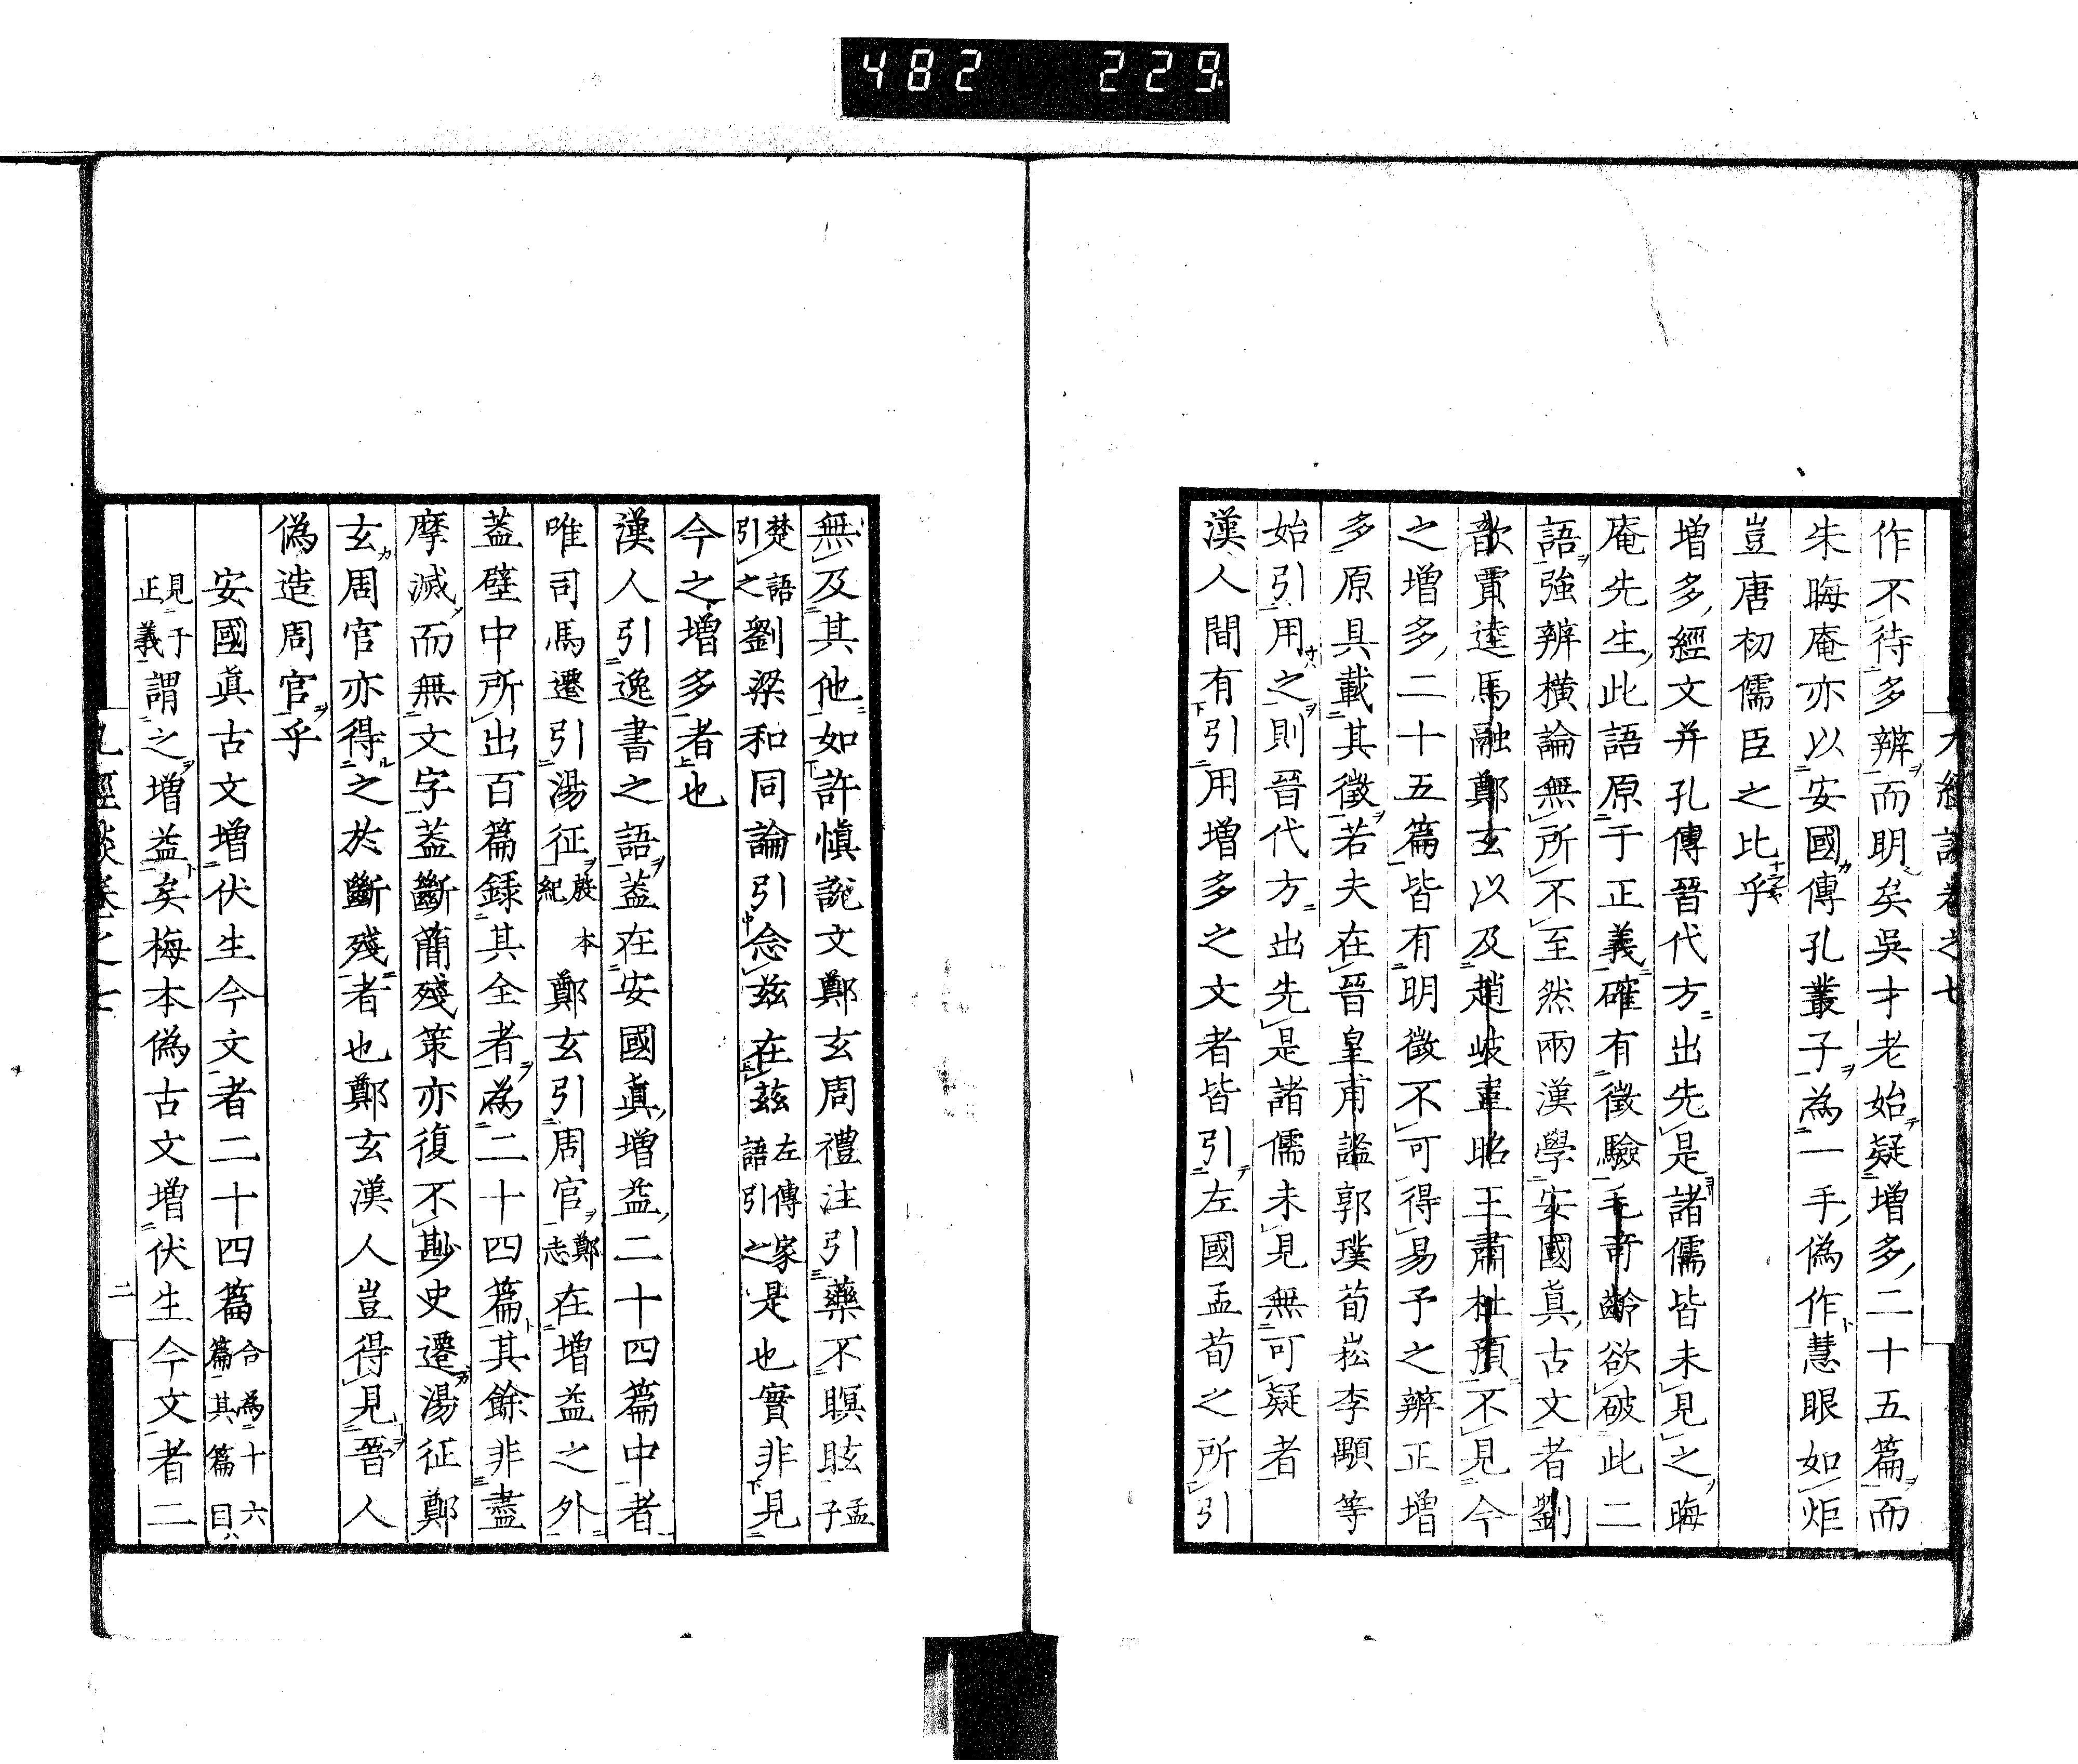 482 229
九經談卷之七
作不待多辨而明矣吳才老始疑增多二十五篇而
朱晦庵亦以安國傳孔叢子為一手偽作慧眼如炬
豈唐初儒臣之比乎
增多經文并孔傳晉代方出先是諸儒皆未見之晦
庵先生此語原于正義確有徵驗毛奇齡欲破此二
語強辨橫論無所不至然兩漢學安國真古文者劉
歆賈逵馬融鄭玄以及趙岐韋昭王肅杜預不見今
之增多二十五篇皆有明徵不可得易予之辨正增
多原具載其徵若夫在晉皇甫謐郭璞荀崧李顒等
始引用之則晉代方出先是諸儒未見無可疑者
漢人間有引用增多之文者皆引左國孟荀之所引
無及其他如許慎說文鄭玄周禮注引藥不瞑眩孟子
楚語引之劉梁和同論引念茲在茲左傳家語引之是也實非見
今之增多者也
漢人引逸書之語蓋在安國真增益二十四篇中者
唯司馬遷引湯征殷本紀鄭玄引周官鄭志在增益之外
蓋壁中所出百篇錄其全者為二十四篇其餘非盡
摩滅而無文字蓋斷簡殘策亦復不尠史遷湯征鄭
玄周官亦得之於斷殘者也鄭玄漢人豈得見晉人
偽造周官乎
安國真古文增伏生今文者二十四篇合為十六篇其篇目
見于正義謂之增益矣梅本偽古文增伏生今文者二
九經談卷之七
二